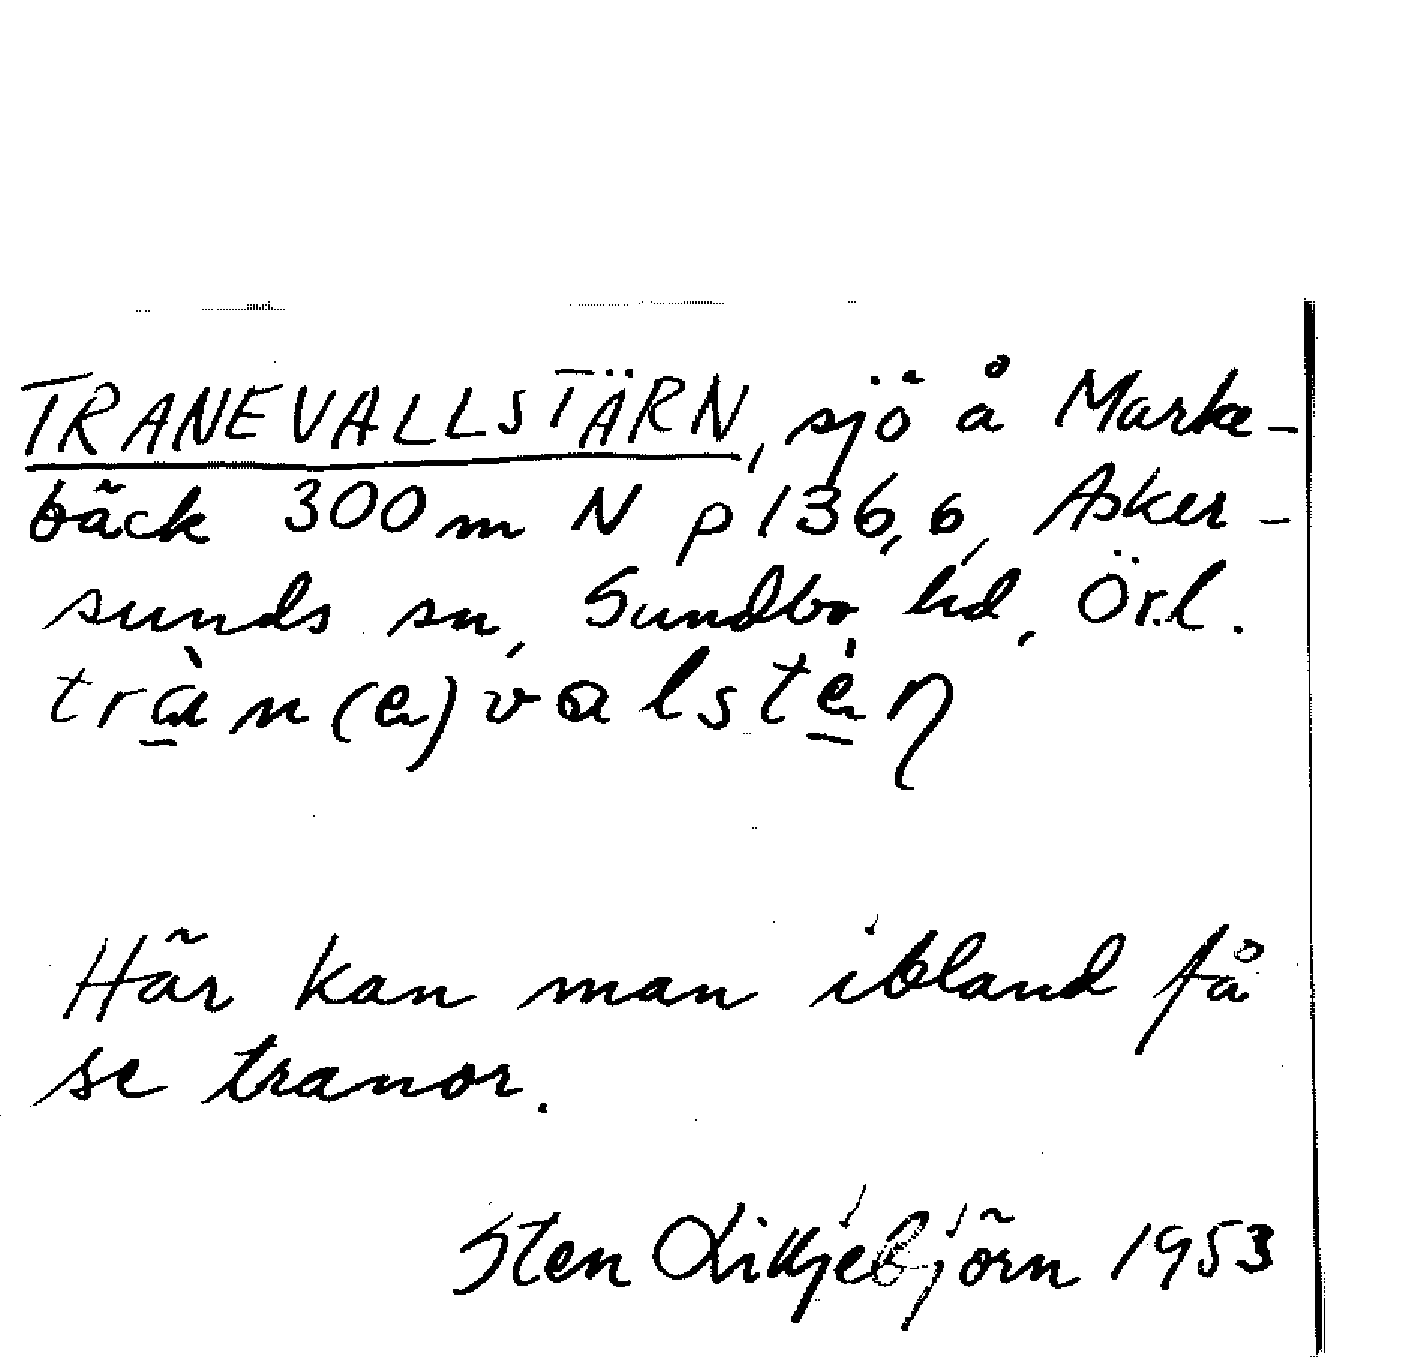 TRANEVALLSTÄRN, sjö å Marke-
bäck 300 m N p 136,6, Asker-
sunds sn, Sundbo hd, Örl.
tràn(e)valstèn
Här kan man ibland få
se tranor.
Sten Liljebjörn 1953